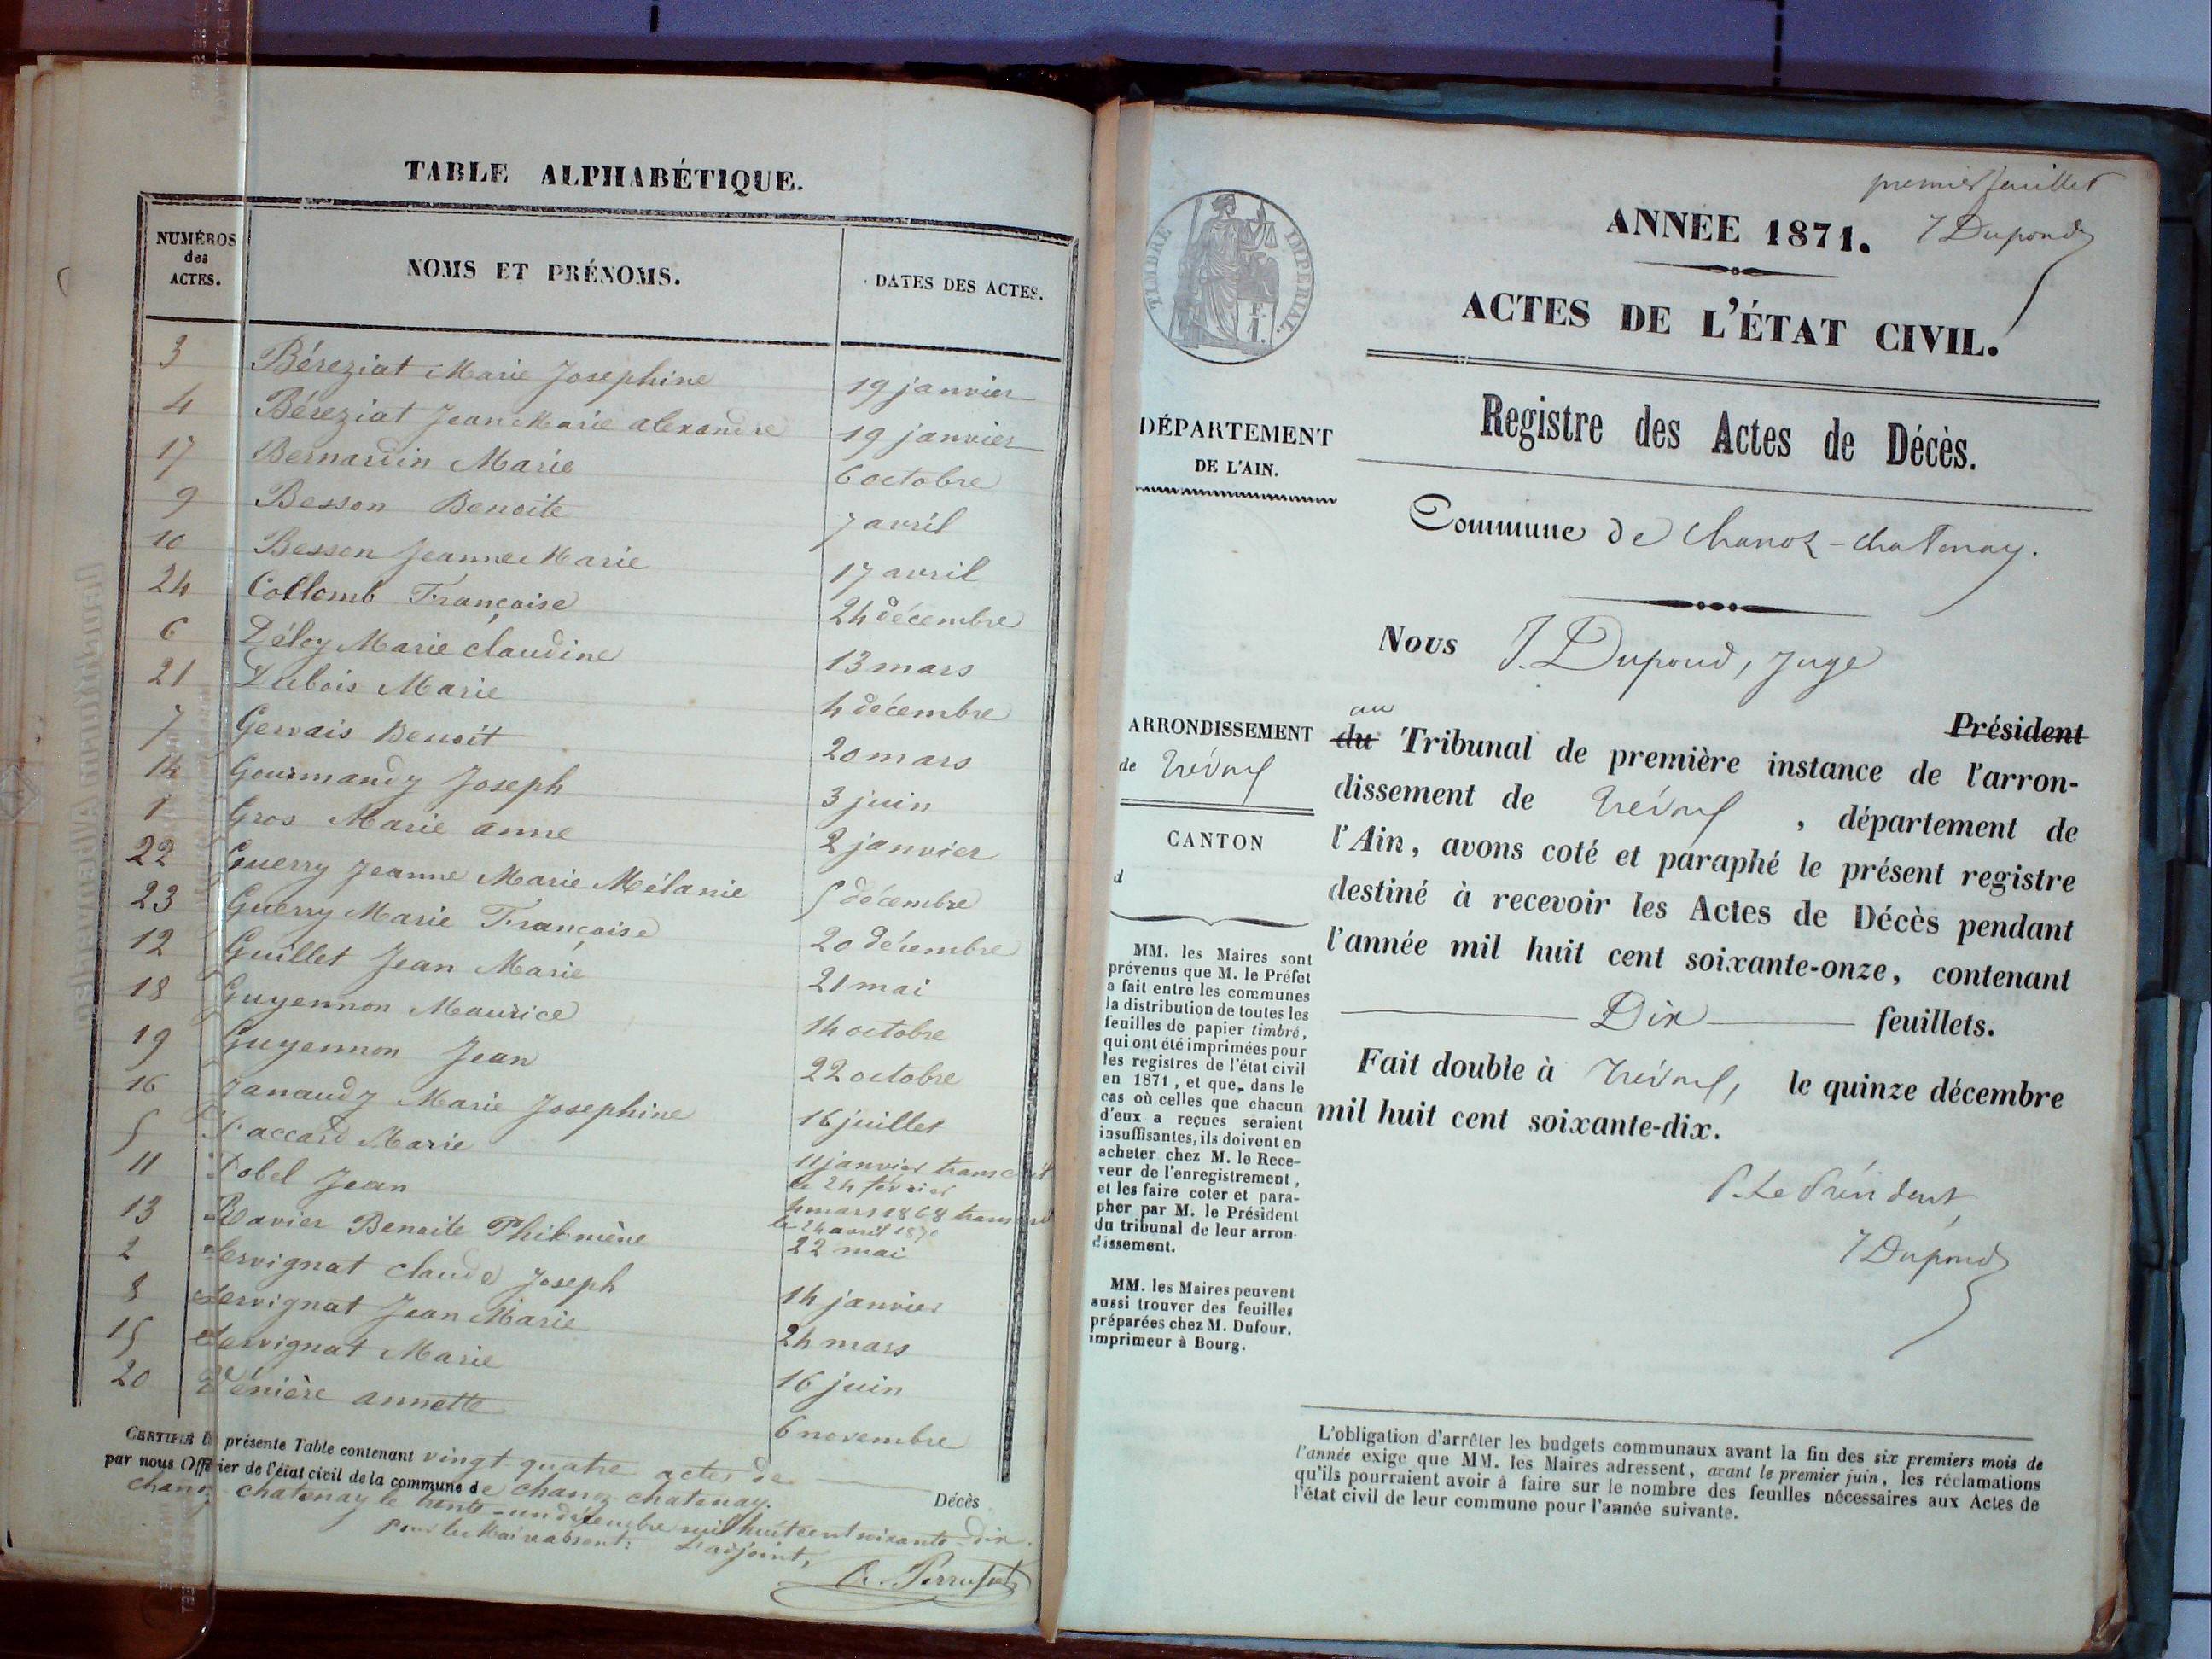 TABLE ALPHABÉTIQUE.
NUMÉROS des ACTES.
NOMS ET PRÉNOMS.
DATES DES ACTES.
3 Béreziat Marie Josephine 19 janvier
4 Béreziat Jean Marie alexandre 19 janvier
17 Bernardin Marie 6 octobre
9 Besson Benoite 7 avril
10 Besson Jeanne Marie 17 avril
24 Collomb Françoise 24 décembre
6 Déloy Marie claudine 13 mars
21 Dubois Marie 4 décembre
7 Gervais Benoit 20 mars
14 Gourmandy Joseph 3 juin
1 Gros Marie anne 2 janvier
22 Guerry Jeanne Marie Mélanie 5 décembre
23 Guerry Marie Françoise 20 décembre
12 Guillet Jean Marie 21 mai
18 Guyennon Maurice 14 octobre
19 Guyennon Jean 22 octobre
16 Janaudy Marie Josephine 16 juillet
5 Paccard Marie 11 janvier transcrit
le 24 février
11 Pobel Jean 4 mars 1868 transcrit
le 24 avril 1870
13 Ravier Benoite Philomène 22 mai
2 Servignat claude Joseph 14 janvier
8 Servignat Jean Marie 24 mars
15 Servignat Marie 16 juin
20 Vénière annette 6 novembre
CERTIFIÉ la présente Table contenant vingt-quatre actes de Décès
par nous Officier de l'état civil de la commune de chanoz-chatenay.
chanoz-chatenay le trente-un décembre mil huit cent soixante-dix.
Pour le Maire absent: L'adjoint,
premier feuillet
J Dupond
TIMBRE IMPERIAL.
ANNÉE 1871.
ACTES DE L'ÉTAT CIVIL.
Registre des Actes de Décès.
DÉPARTEMENT
DE L'AIN.
Commune de Chanoz-chatenay.
Nous J. Dupond, Juge
Président
au
ARRONDISSEMENT
de Trévoux
CANTON
d
du Tribunal de première instance de l'arron-
dissement de Trévoux, département de
l'Ain, avons coté et paraphé le présent registre
destiné à recevoir les Actes de Décès pendant
l'année mil huit cent soixante-onze, contenant
Dix feuillets.
Fait double à Trévoux, le quinze décembre
mil huit cent soixante-dix.
P. Le Président
J Dupond
MM. les Maires sont
prévenus que M. le Préfet
a fait entre les communes
la distribution de toutes les
feuilles de papier timbré,
qui ont été imprimées pour
les registres de l'état civil
en 1871, et que, dans le
cas où celles que chacun
d'eux a reçues seraient
insuffisantes, ils doivent en
acheter chez M. le Rece-
veur de l'enregistrement,
et les faire coter et para-
pher par M. le Président
du tribunal de leur arron-
dissement.
MM. les Maires peuvent
aussi trouver des feuilles
préparées chez M. Dufour,
imprimeur à Bourg.
L'obligation d'arrêter les budgets communaux avant la fin des six premiers mois de
l'année exige que MM. les Maires adressent, avant le premier juin, les réclamations
qu'ils pourraient avoir à faire sur le nombre des feuilles nécessaires aux Actes de
l'état civil de leur commune pour l'année suivante.